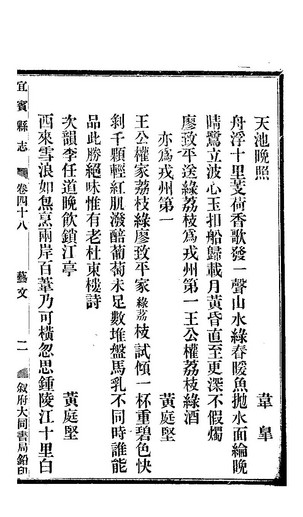 天池晚照　韋臯
舟浮十里芰荷香歌發一聲山水綠春暖魚抛水面綸晚
晴鷺立波心玉扣船歸載月黃昏直至更深不假燭
廖致平送綠荔枝爲戎州第一王公權荔枝綠酒
亦爲戎州第一　黃庭堅
王公權家荔枝綠廖致平家綠荔枝試傾一杯重碧色快
剝千顆輕紅肌潑醅葡萄未足數堆盤馬乳不同時誰能
品此勝絕味惟有老杜東樓詩
次韻李任道晚飲鎖江亭　黃庭堅
西來雪浪如炰烹兩岸一葦乃可橫忽思鍾陵江十里白
宜賓縣志　卷四十八　藝文　二　敘府大同書局鉛印